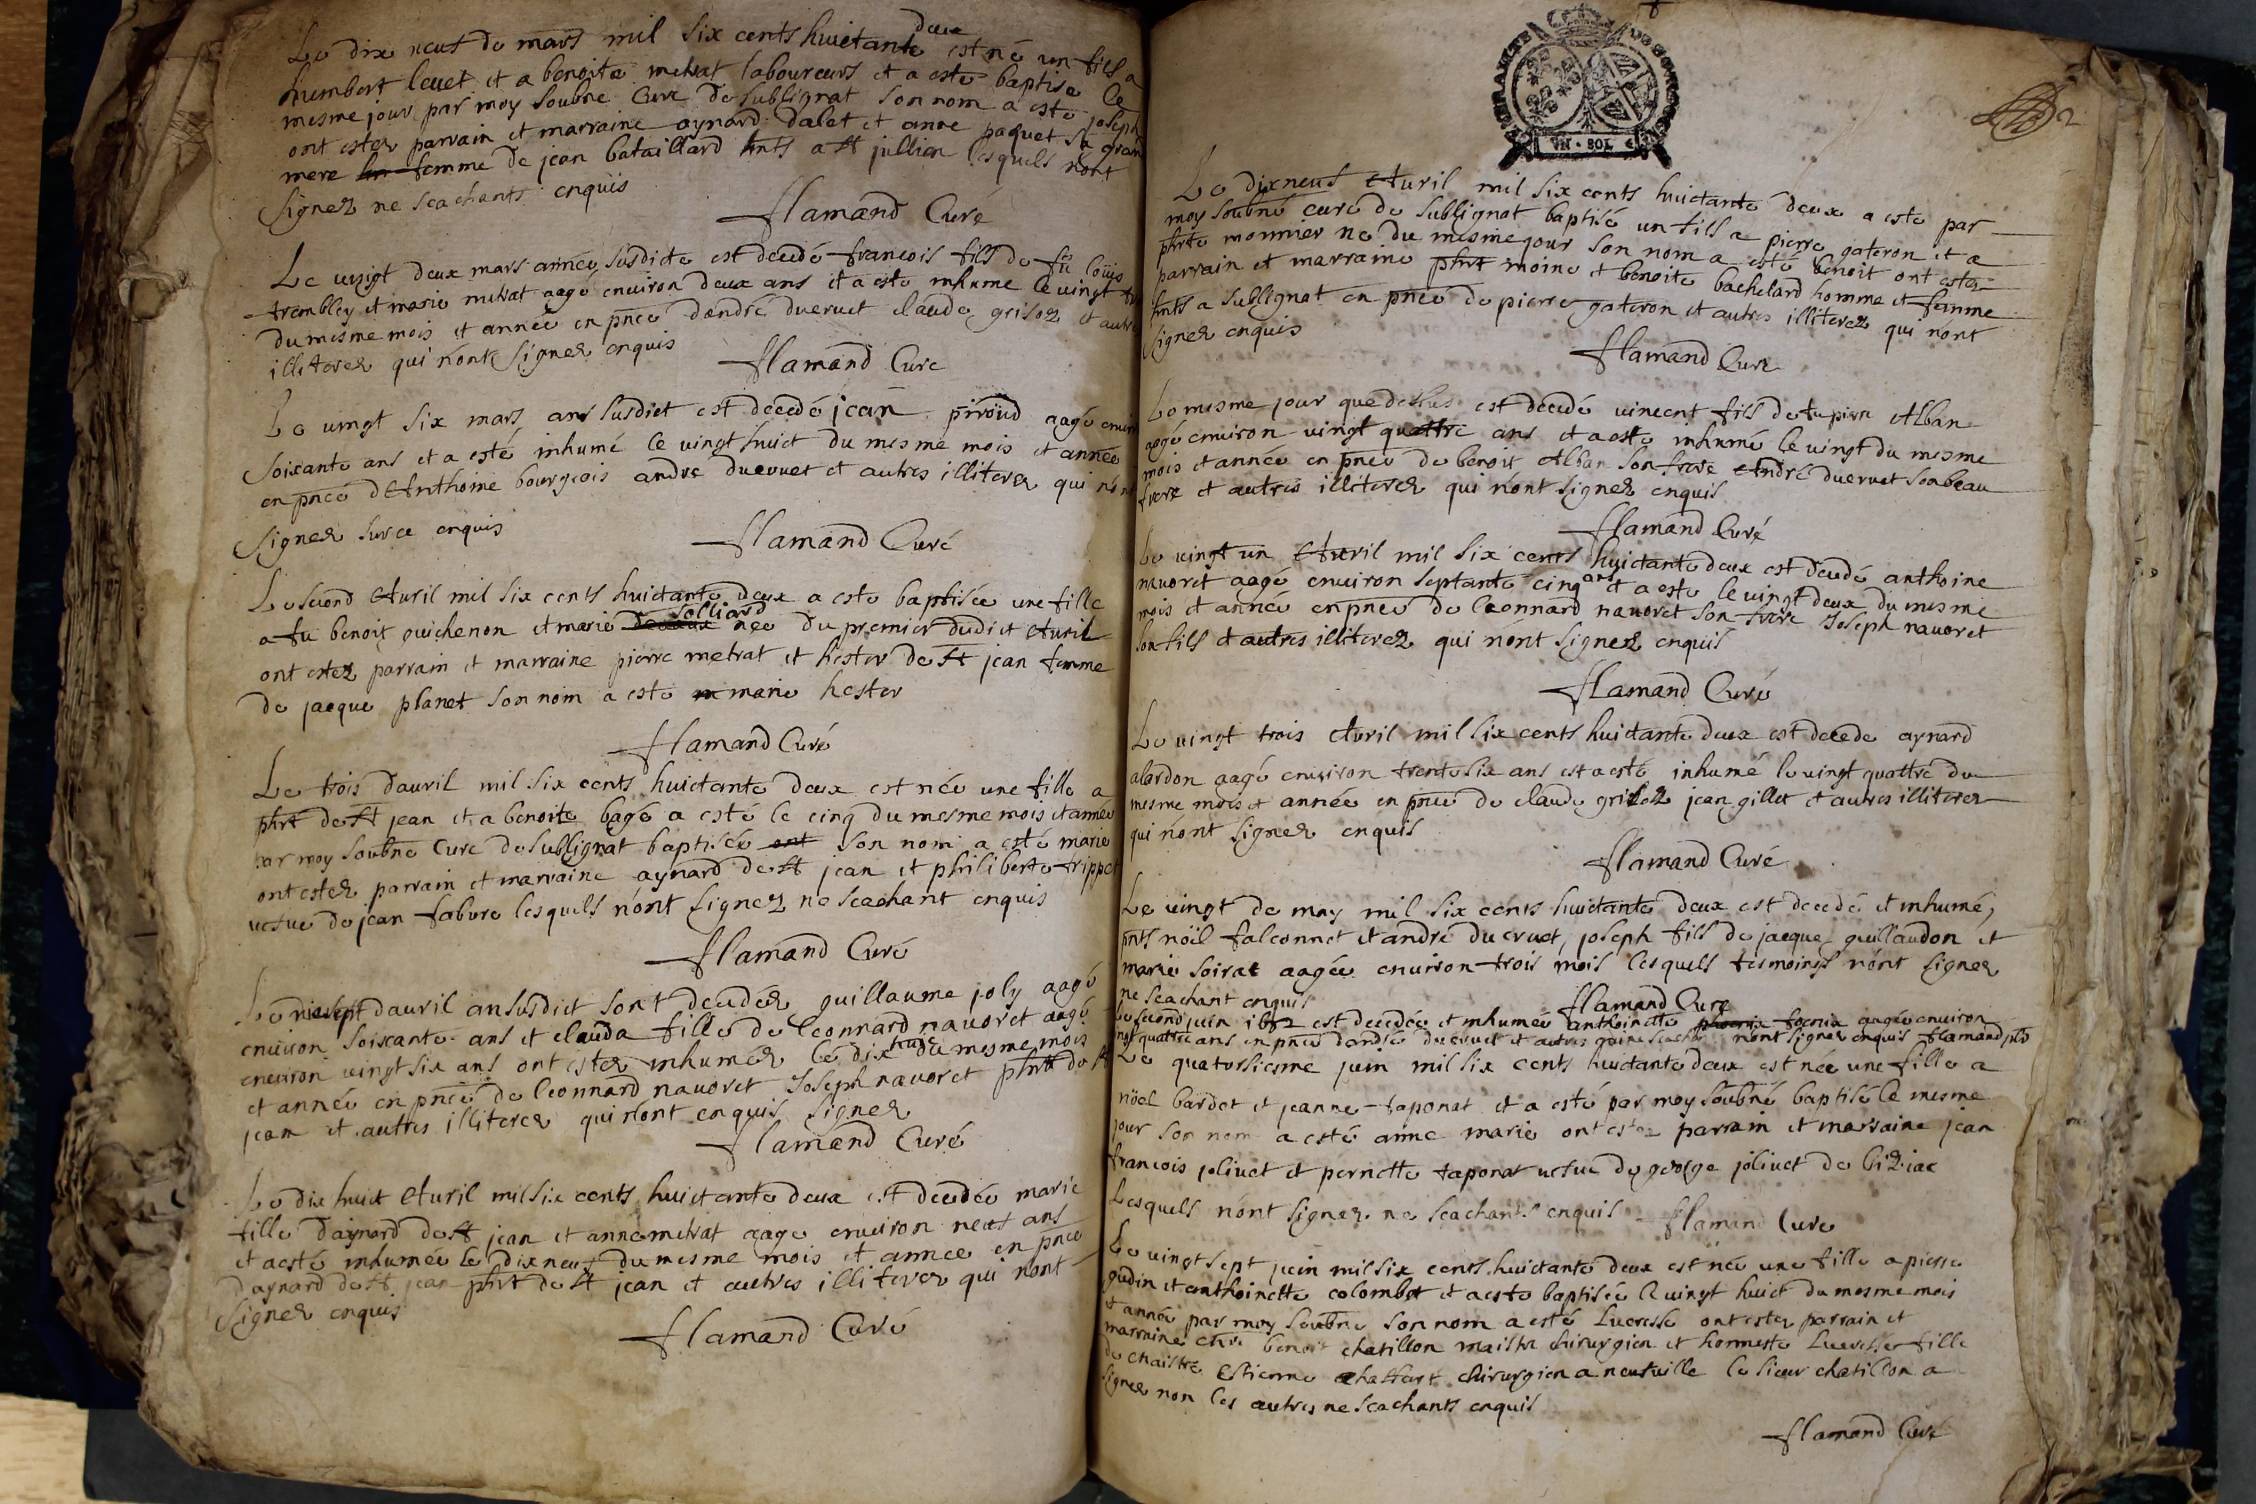 Le dix neuf de mars mil six cents huictante deux est né un fils a
humbert levet et a benoite metrat laboureurs et a esté baptisé le
mesme jour par moy soubné curé de sublignat son nom a esté joseph
ont ester parrain et marraine aynard dalet et anne paquet sa gran
mere femme de jean bataillard hnts a st jullien lesquels nont
signer ne scachants enquis
flamand Curé
Le vingt deux mars année susdicte est decedé francois fils de fu loüis
trembley et marie metrat aagé environ deux ans et a esté inhumé le vingt
du mesme mois et année en pnce dandré ducruet claude grisoz et autre
illiterez qui nont signer enquis
flamand Cure
Le vingt six mars, an susdict est decedé jean piroud aagé envir
soixante ans et a esté inhumé le vingt huict du mesme mois et année
en pnce d'Anthoine bourgeois andré ducruet et autres illiterez qui nont
signer sur ce enquis
flamand Curé
Le second Avril mil six cents huictante deux a esté baptisée une fille
a fu benoit guichenon et marie solliard née du premier dudict Avril
ont ester parrain et marraine pierre metrat et hester de st jean femme
de jacque planet son nom a esté marie hester
flamand Curé
Le trois davril mil six cents huictante deux est née une fille a
phrt de st jean et a benoite bagé a esté le cinq du mesme mois et année
par moy soubné curé de sublignat baptisée son nom a esté marie
ont ester parrain et marraine aynard de st jean et philiberte trippet
vefve de jean fabvre lesquels nont signer ne scachant enquis
flamand Curé
davril an susdict sont decedez guillaume joly aagé
environ soixante ans et clauda fille de leonnard navoret aagé
environ vingt six ans ont ester inhumez le dix huict du mesme mois
et année en pnce de leonnard navoret Joseph navoret phrt de st
jean et autres illiterez qui nont enquis signer
flamand Curé
Le dix huict Avril mil six cents huictante deux est decedée marie
fille daynard de st jean et anne metrat aagé environ neuf ans
et a esté inhumée le dix neuf du mesme mois et année en pnce
daynard de st jean phrt de st jean et autres illiterez qui nont
signer enquis
flamand Curé
VN · SOL
2
Le dixneuf Avril mil six cents huictante deux a esté par
moy soubné curé de sublignat baptisé un fils a pierre gateron et a
phrte monnier né du mesme jour son nom a esté benoit ont ester
parrain et marraine phrt moine et benoite bachelard homme et femme
hnts a sublignat en pnce de pierre gateron et autres illiterez qui nont
signer enquis
flamand Curé
Le mesme jour que dessus est decedé vincent fils de fu pierre Alban
aagé environ vingt quattre ans et a esté inhumé le vingt du mesme
mois et année en pnce de benoit Alban son frere André ducruet son beau
frere et autres illiterez qui nont signer enquis
flamand Curé
Le vingt un Avril mil six cents huictante deux est decedé anthoine
navoret aagé environ septante cinq ans et a esté le vingt deux du mesme
mois et année en pnce de leonnard navoret son frere Joseph navoret
son fils et autres illiterez qui nont signer enquis
flamand Curé
Le vingt trois Avril mil six cents huictante deux est decede aynard
alardon aagé environ trente six ans est a esté inhumé le vingt quattre du
mesme mois et année en pnce de claude grisoz jean gillet et autres illiterez
qui nont signer enquis
flamand Curé
Le vingt de may mil six cents huictante deux est decedé et inhumé,
pnts noël falconnet et andré ducruet, joseph fils de jacque guillaudon et
marie soirat aagée environ trois mois lesquels tesmoings nont signer
ne scachant enquis
flamand Cure
Le second juin 1682 est decedée et inhumée anthoinette aagée environ
quattre ans en pnce dandré ducruet et autres nont signer enquis flamand
Le quatorsiesme juin mil six cents huictante deux est née une fille a
nöel bardet et jeanne taponat et a esté par moy soubné baptisé le mesme
jour son nom a esté anne marie ont ester parrain et marraine jean
francois jolivet et pernette taponat vefve de george jolivet de biziac
Lesquels nont signer ne scachants enquis flamand Cure
Le vingt sept juin mil six cents huictante deux est née une fille a pierre
gudin et anthoinette colombet et a esté baptisée le vingt huict du mesme mois
et année par moy soubné son nom a esté Lucresse ont ester parrain et
marraine benoit chatillon maistre chirurgien et honneste Lucresse fille
de Estienne chirurgien a neufville le sieur chatillon a
signer non les autres ne scachants enquis
flamand Curé